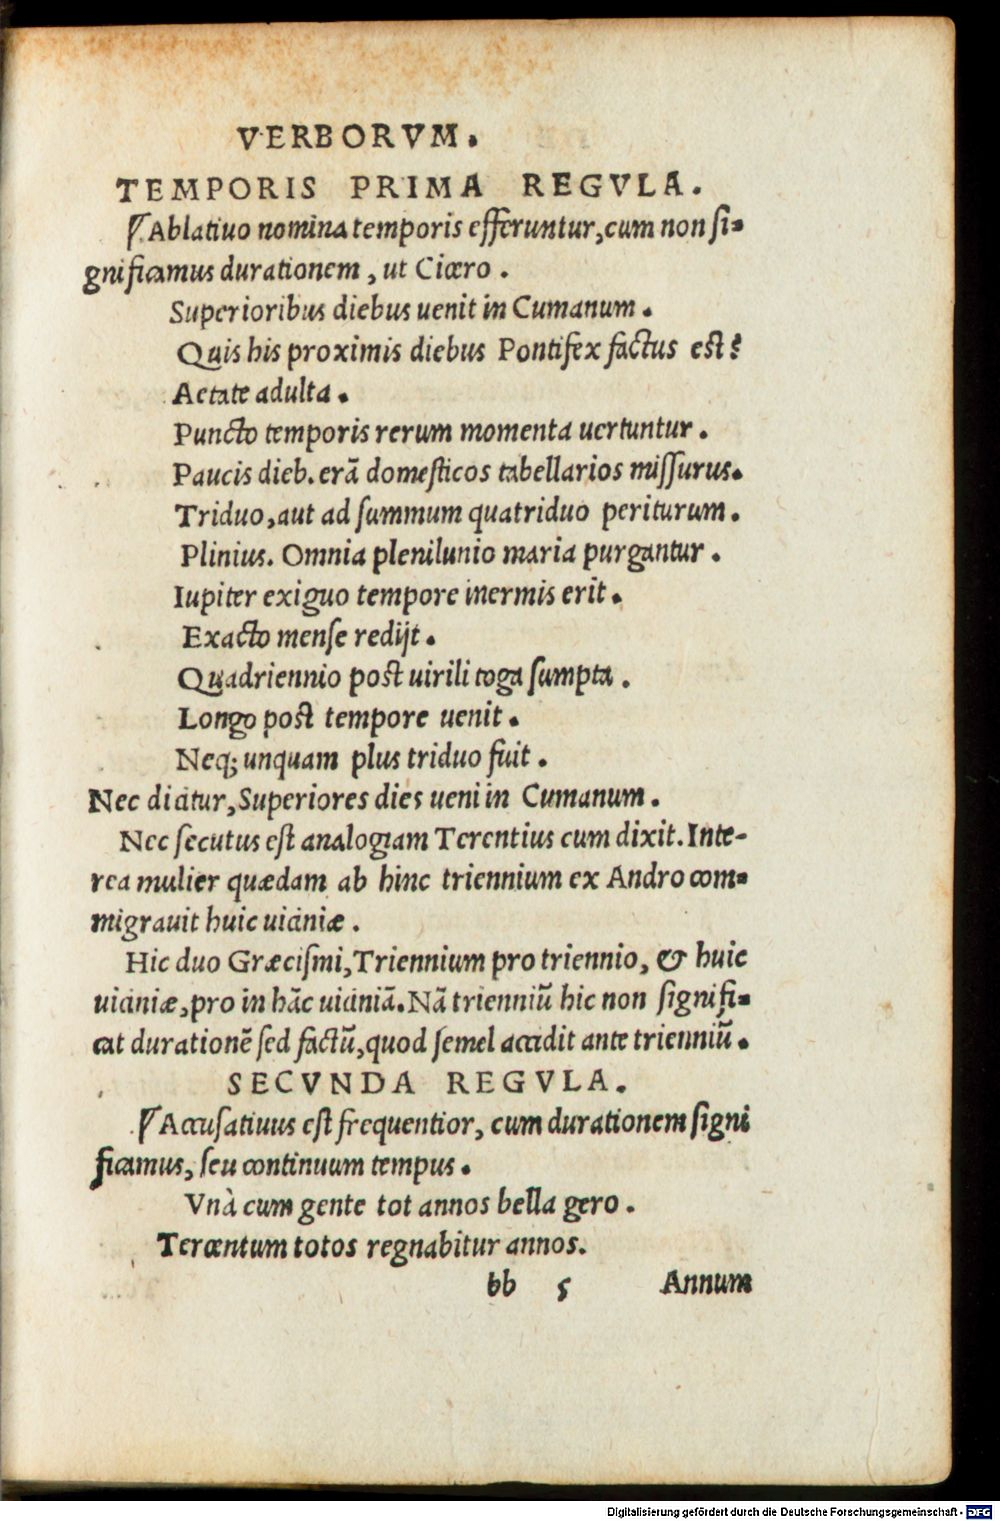 VERBORVM.
TEMPORIS PRIMA REGVLA.
Ablatiuo nomina temporis efferuntur, cum non si-
gnificamus durationem, ut Cicero.
Superioribus diebus uenit in Cumanum.
Quis his proximis diebus Pontifex factus est?
Aetate adulta.
Puncto temporis rerum momenta uertuntur.
Paucis dieb. erã domesticos tabellarios missurus.
Triduo, aut ad summum quatriduo periturum.
Plinius. Omnia plenilunio maria purgantur.
Iupiter exiguo tempore inermis erit.
Exacto mense redijt.
Quadriennio post uirili toga sumpta.
Longo post tempore uenit.
Neq; unquam plus triduo fuit.
Nec dicitur, Superiores dies ueni in Cumanum.
Nec secutus est analogiam Terentius cum dixit. Inte-
rea mulier quædam ab hinc triennium ex Andro com-
migrauit huic uiciniæ.
Hic duo Græcismi, Triennium pro triennio, & huic
uiciniæ, pro in hãc uiciniã. Nã trienniũ hic non signifi-
cat durationẽ sed factũ, quod semel accidit ante trienniũ.
SECVNDA REGVLA.
Accusatiuus est frequentior, cum durationem signi
ficamus, seu continuum tempus.
Vnà cum gente tot annos bella gero.
Tercentum totos regnabitur annos.
bb 5 Annum
Digitalisierung gefördert durch die Deutsche Forschungsgemeinschaft - DFG